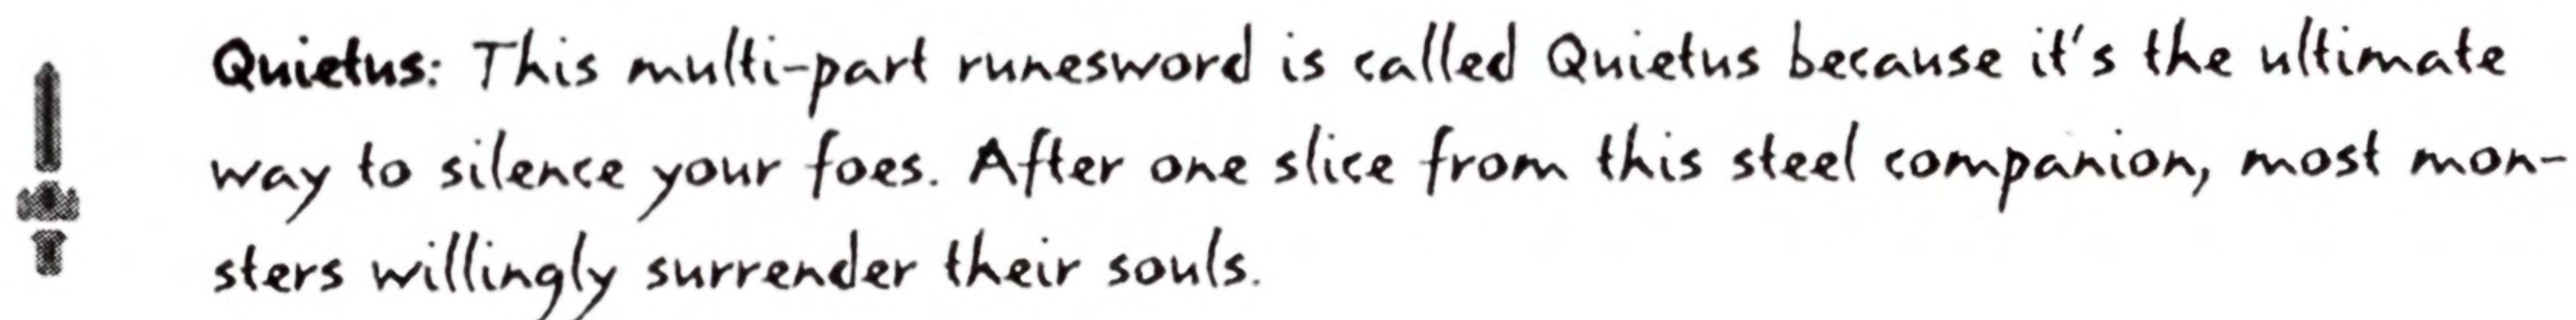 Quietus: This multi-part runesword is called Quietus because it's the ultimate
way to silence your foes. After one slice from this steel companion, most mon-
sters willingly surrender their souls.